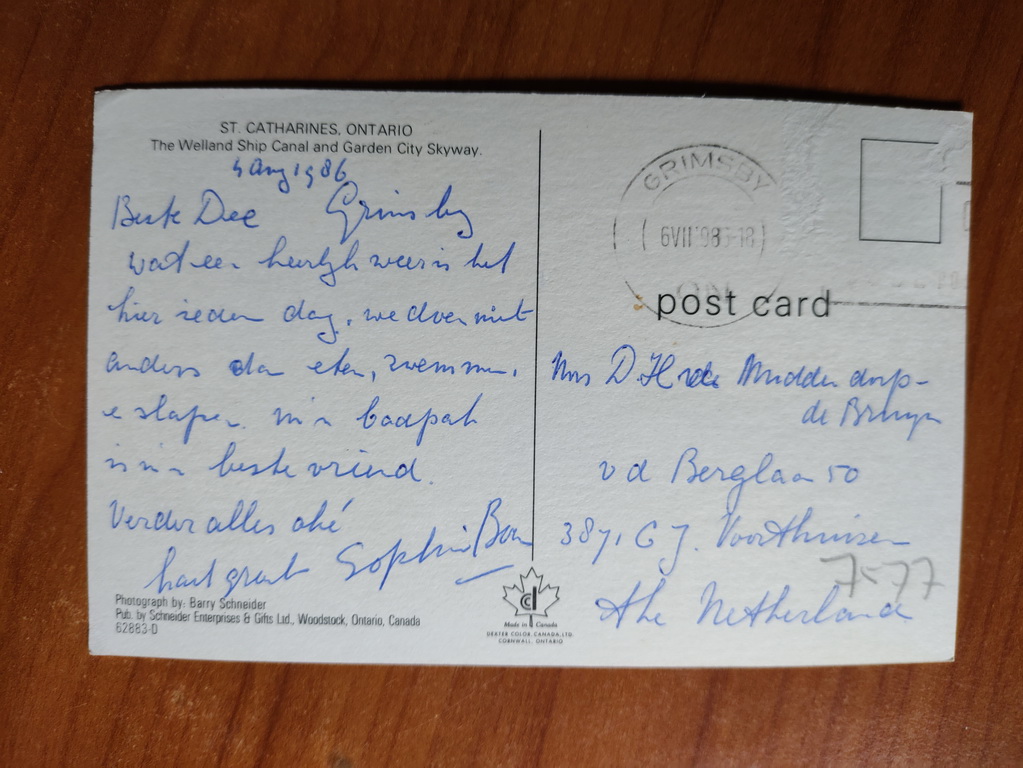 ST. CATHARINES, ONTARIO
The Welland Ship Canal and Garden City Skyway.
4 Aug 1986
Beste Dee Grimsby
wat een heerlijk weer is het
hier iedere dag, we doen niet
anders dan eten, zwemmen,
e slapen. m'n badpak
is m'n beste vriend.
Verder alles oké
hart groet Sophie Bon
Photograph by: Barry Schneider
Pub. by Schneider Enterprises & Gifts Ltd., Woodstock, Ontario, Canada
62883-D
Made in Canada
DEXTER COLOR CANADA LTD.
CORNWALL, ONTARIO
GRIMSBY
6VII 98 -18
ON
post card
Mrs D.H Middendorp-
de Bruyn
v d Berglaan 50
3871 G J. Voorthuizen
the Netherland
7577